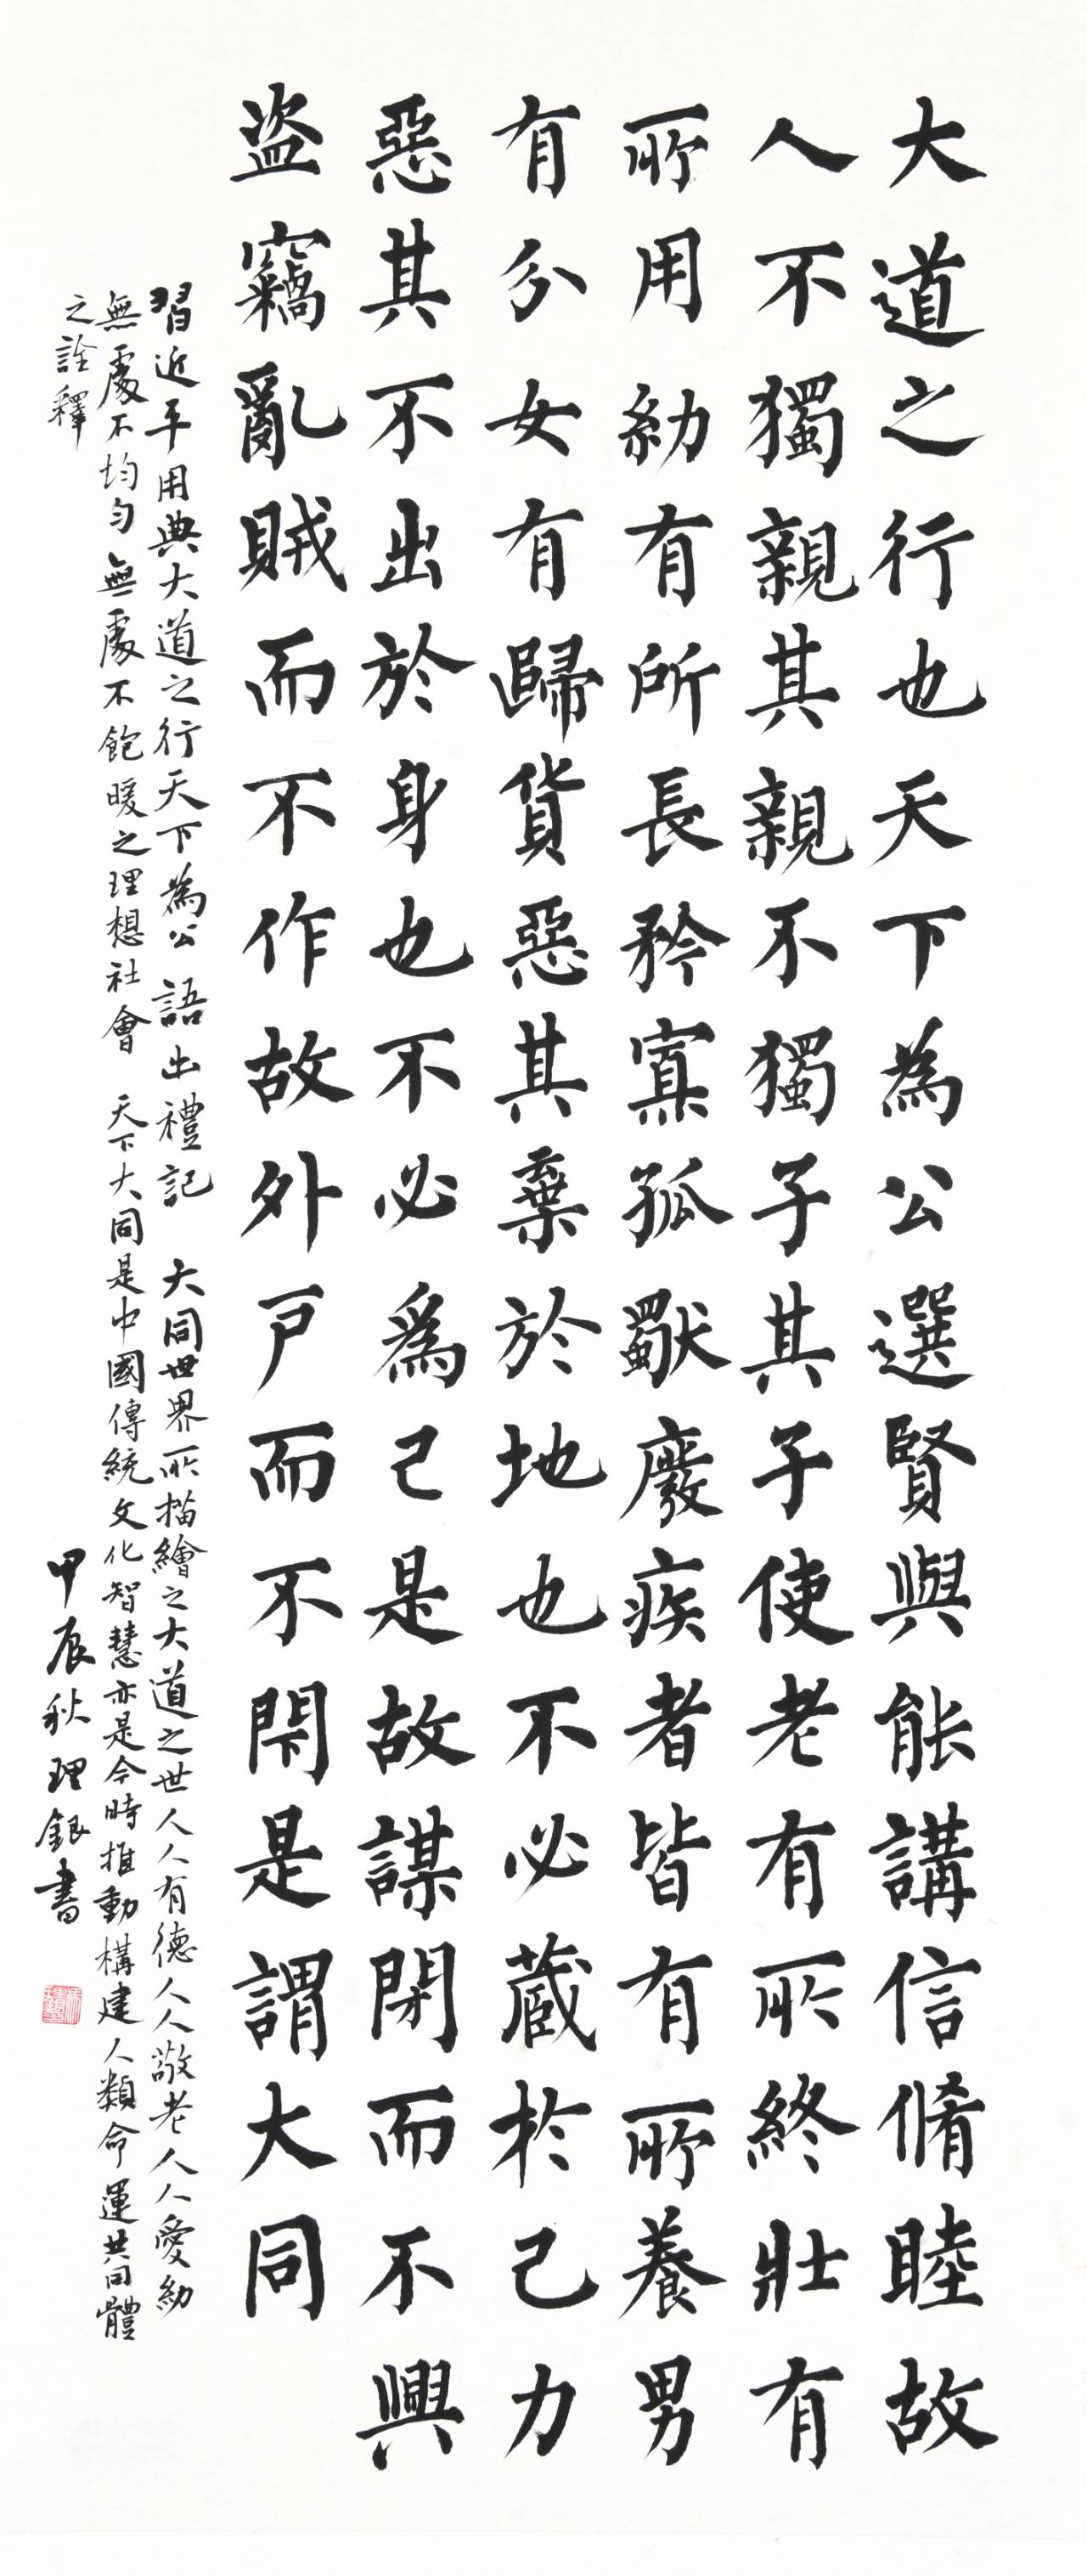 大道之行也天下為公選賢與能講信脩睦故
人不獨親其親不獨子其子使老有所終壯有
所用幼有所長矜寡孤獨廢疾者皆有所養男
有分女有歸貨惡其棄於地也不必藏於己力
惡其不出於身也不必為己是故謀閉而不興
盜竊亂賊而不作故外戶而不閉是謂大同
習近平用典大道之行天下為公 語出禮記 大同世界所描繪之大道之世人人有德人人敬老人人愛幼
無處不均勻無處不飽暖之理想社會 天下大同是中國傳統文化智慧亦是今時推動構建人類命運共同體
之詮釋
甲辰秋理銀書